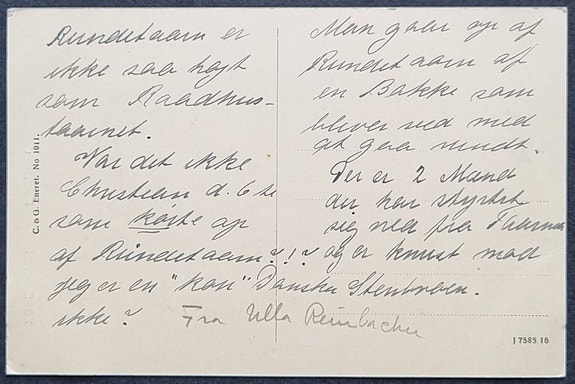 Rundetaarn er
ikke saa højt
som Raadhus-
taarnet.
Var det ikke
Christian d. 6te
som kørte op
af Rundetaarn?!?
Jeg er en "kon" Danske
ikke?
Man gaar op af
Rundetaarn af
en Bakke som
bliver ved med
at gaa rundt.
Der er 2 Mand
der har styrtet
sig ned fra Taarnet
og er knust mod
Stenbroen.
Fra Ulla Reinbacher
C. & G. Eneret. No 1011.
J 7585 16